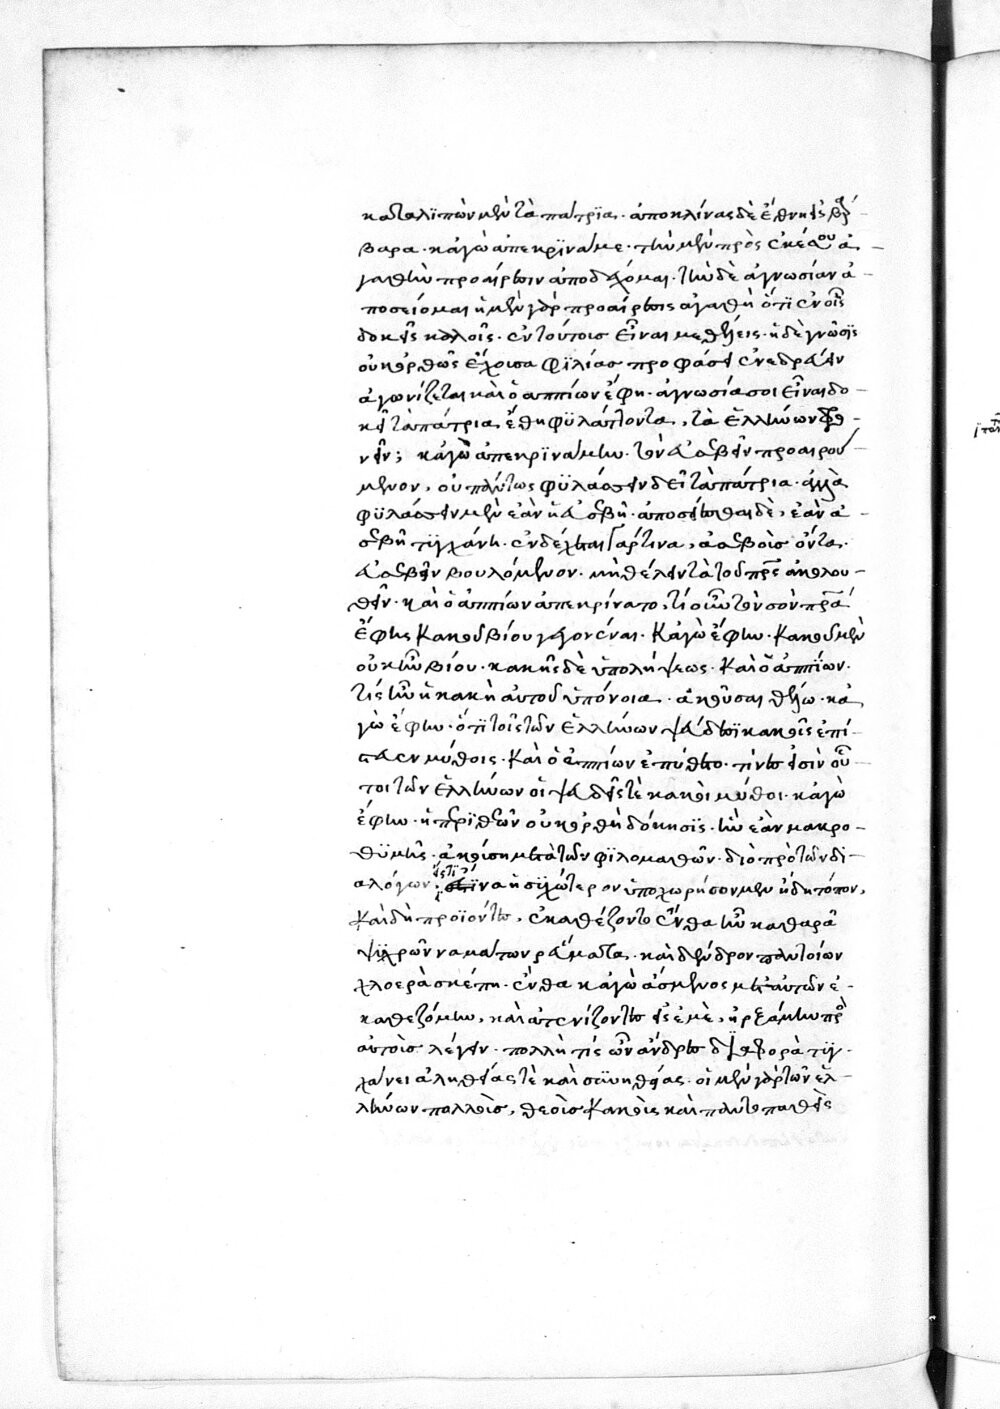 καταλϊπὼν μὲν τὰ πάτρϊα· ἀποκλίνας δὲ ἔθη εἰς βάρ-
βαρα· κἀγὼ ἀπεκρϊνάμην· τὴν μὲν πρός σε αὐτοῦ ἀ-
γαθὴν προαίρεσιν ἀποδέχομαι· τὴν δὲ ἀγνωσίαν ἀ-
ποσείομαι ἡ μὲν γὰρ προαίρεσις ἀγαθὴ ὅτϊ ἐν οἷς
δοκεῖς καλοῖς· ἐν τούτοις εἶναι με θέλεις· ἡ δὲ γνῶσϊς
οὐκ ὀρθῶς ἔχουσα φϊλίας προφάσει ἐνεδρεύειν
ἀγωνίζεται καὶ ὁ ἀππίων ἔφη· ἀγνωσία σοι εἶναι δο-
κεῖ τὰ πάτρια ἔθη φϋλάττοντα, τὰ ἑλλήνων φρο-
νεῖν; κἀγὼ ἀπεκρϊνάμην· τὸν εὐσεβεῖν προαιρού-
μενον, οὐ πάντως φϋλάσσειν δεῖ τὰ πάτρια· ἀλλὰ
φϋλάσσειν μὲν ἐὰν ᾖ εὐσεβῆ· ἀποσείεσθαι δὲ, ἐὰν ἀ-
σεβῆ τϋγχάνῃ· ἐνδέχεται γάρ τινα, ἀσεβοῦς ὄντα·
εὐσεβεῖν βουλόμενον· μὴ θέλειν τὰ τοῦ πατρὸς ἀκολου-
θεῖν· καὶ ὁ ἀππίων ἀπεκρίνατο, τί οὖν τὸν σὸν πατέρα
ἔφης κακοῦ βίου γεγονέναι· κἀγὼ ἔφην· κακοῦ μὲν
οὐκ ἦν βίου· κακῆς δὲ ὑπολήψεως· καὶ ὁ ἀππϊων·
τίς ἦν ἡ κακὴ αὐτοῦ ὑπόνοια, ἀκοῦσαι θέλω· κἀ
γὼ ἔφην· ὅτϊ τοῖς τῶν ἑλλήνων ψευδέσϊ κακοῖς ἐπί-
στευεν μύθοις· καὶ ὁ ἀππίων ἐπύθετο· τίνες εἰσὶν οὗ-
τοι τῶν ἑλλήνων οἱ ψευδεῖς τὲ κακοὶ μύθοι· κἀγὼ
ἔφην· ἡ περϊ θεῶν οὐκ ὀρθὴ δόκησϊς· ἣν ἐὰν μακρο-
θϋμῇς· ἀκούσῃ μετὰ τῶν φϊλομαθῶν· διὸ πρὸ τῶν δϊ-
αλόγων ἐστϊν εἰς ἡσϋχώτερον ὑποχωρήσομεν ἤδη τόπον,
καὶ δὴ προϊόντες, ἐκαθέζοντο ἔνθα ἦν καθαρᾶ
ψϋχρῶν ναμάτων ῥεύματα· καὶ δένδρον παντοίων
χλοερὰ σκέπη· ἔνθα κἀγὼ ἄσμενος μετ' αὐτῶν ἐ-
καθεζόμην, καὶ ἀτενίζοντες εἰς ἐμὲ, ἠρξάμην πρὸς
αὐτοὺς λέγειν· πολλὴ τίς ὦ ἄνδρες διαφορὰ τϋγ-
χάνει ἀληθείας τὲ καὶ συνηθείας· οἱ μὲν γὰρ τῶν ἑλ-
λήνων πολλοὺς, θεοὺς κακοὺς καὶ παντοπαθεῖς